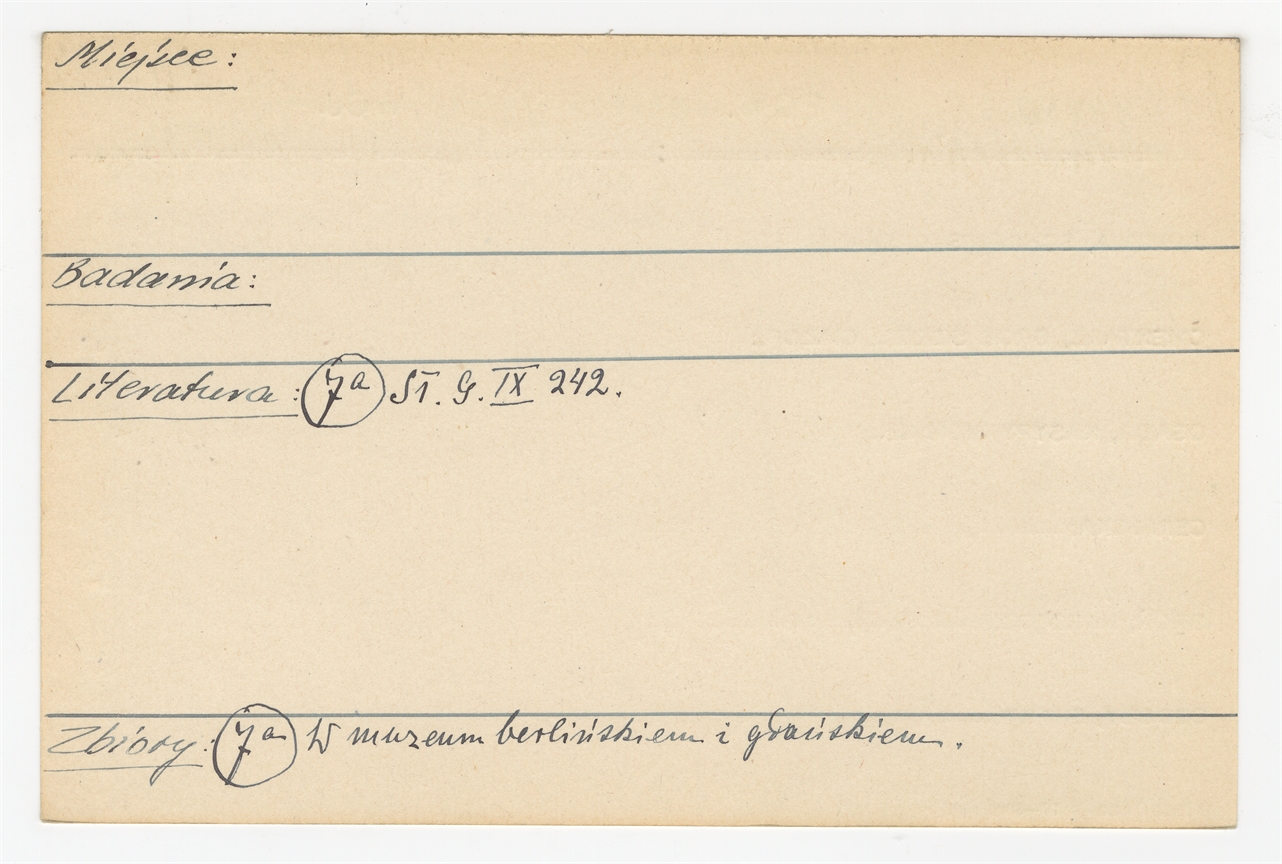 Miejsce:
Badania:
Literatura: 7a Sł. G. IX 242.
Zbiory: 7a W muzeum berlińskiem i gdańskiem.